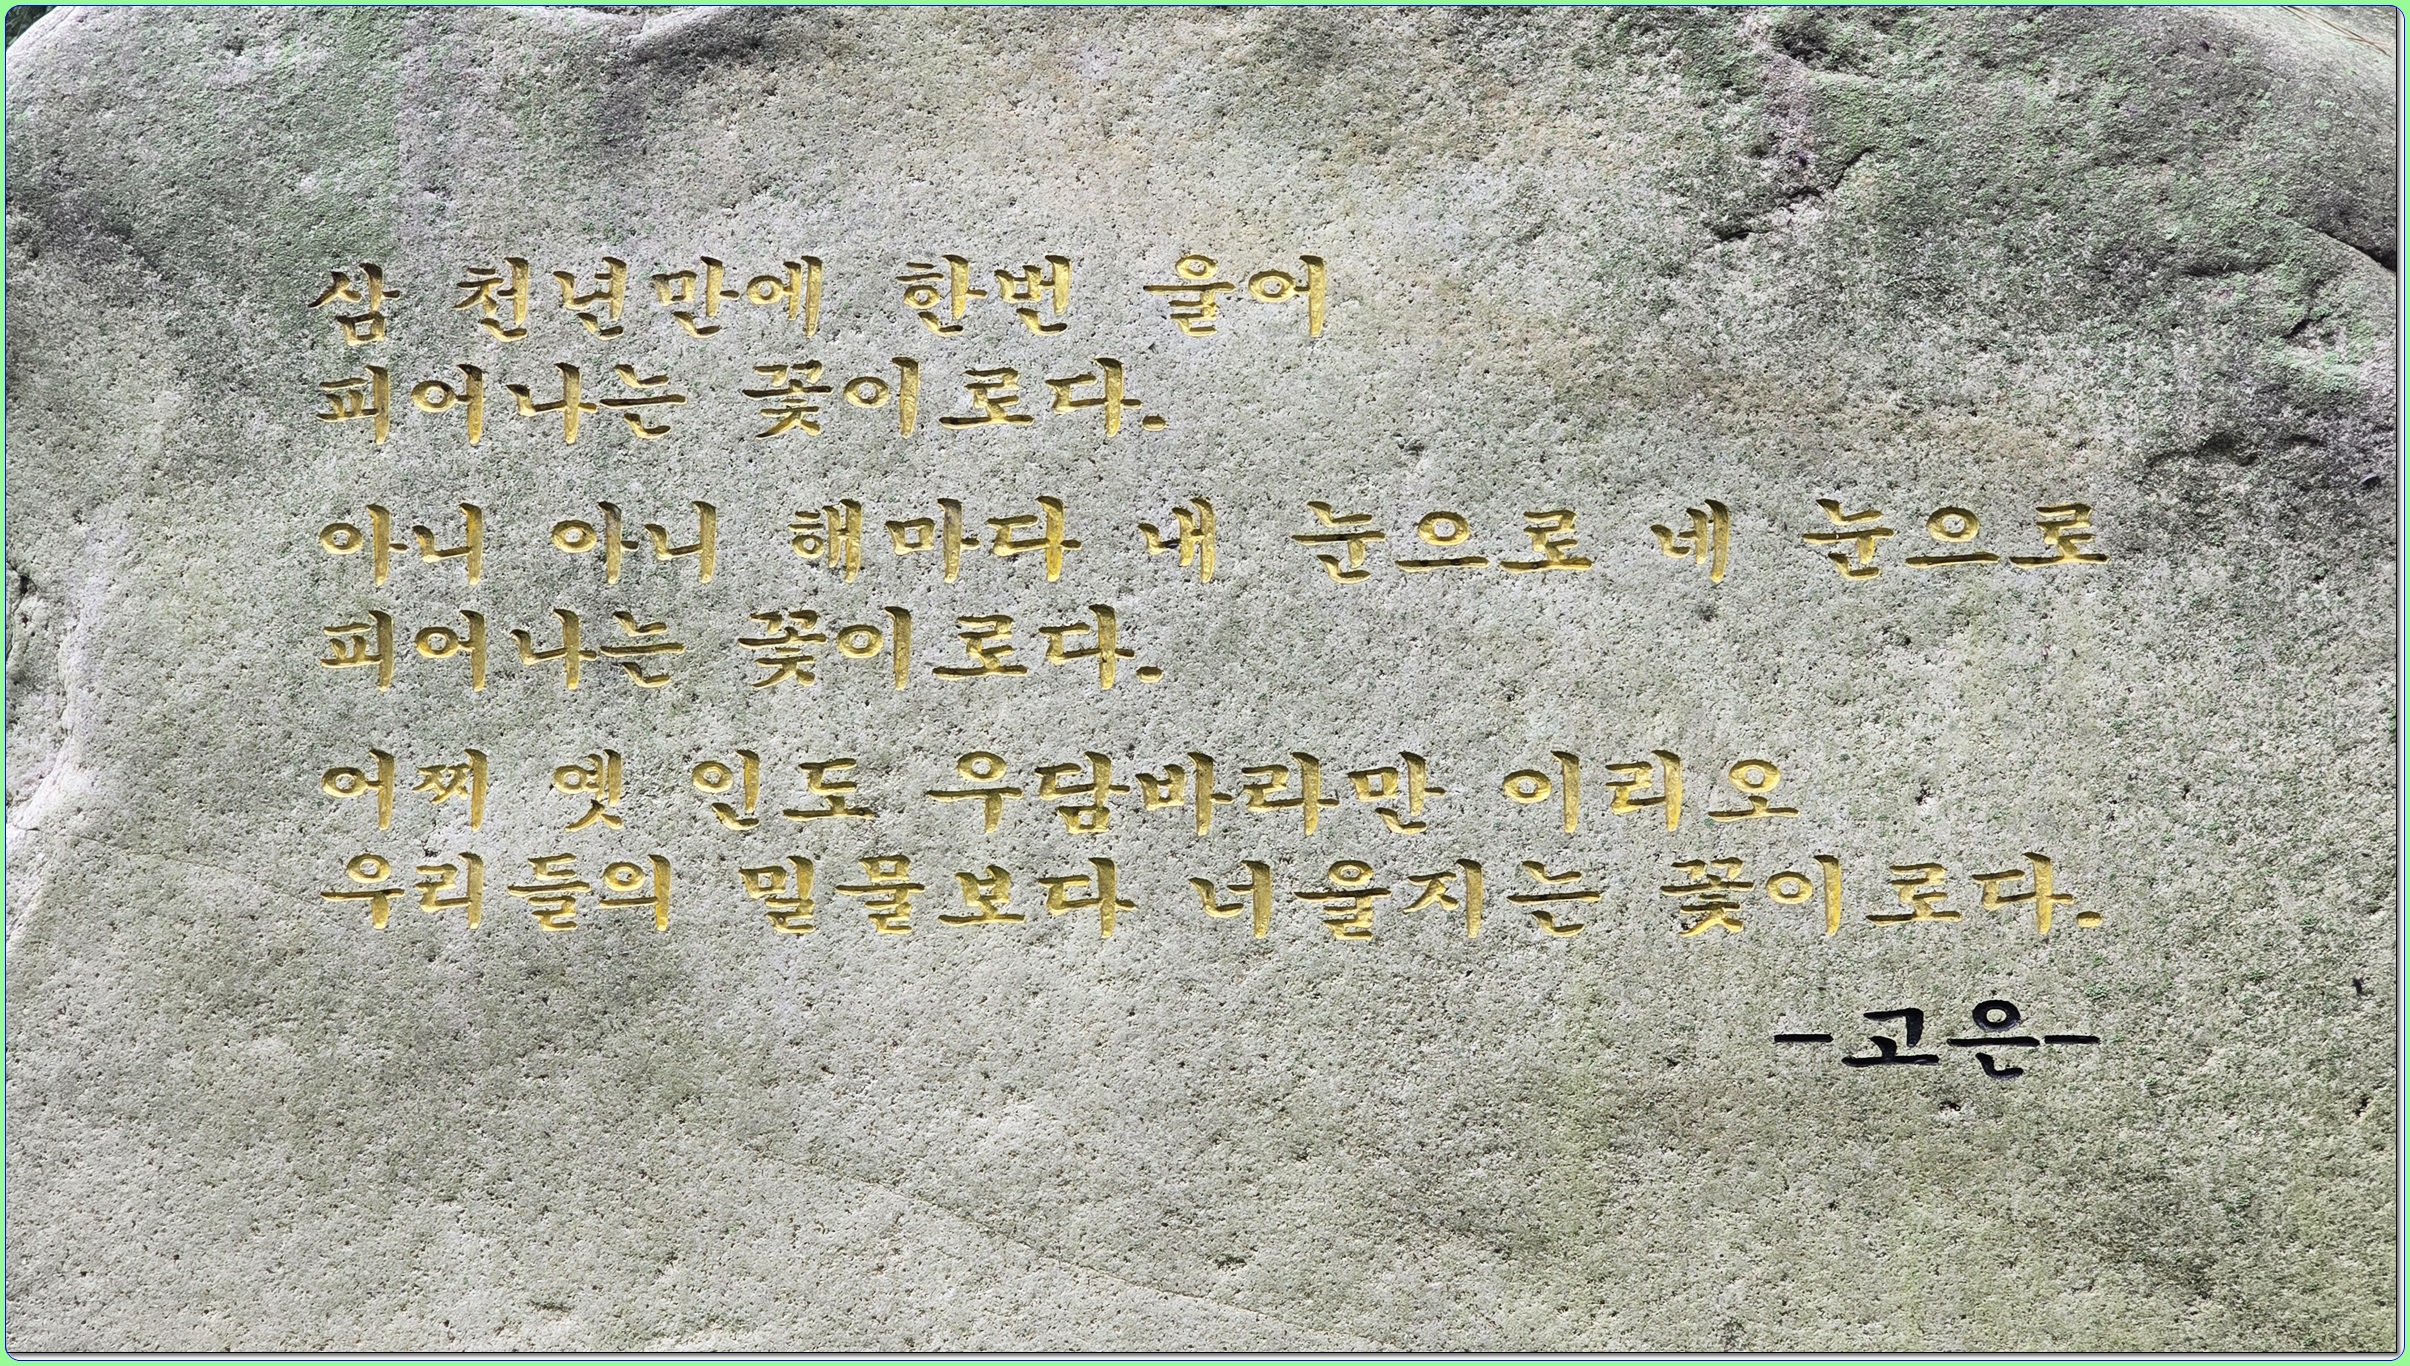 삼 천년만에 한번 울어
피어나는 꽃이로다.
아니 아니 해마다 내 눈으로 네 눈으로
피어나는 꽃이로다.
어찌 옛 인도 우담바라만 이리오
우리들의 밀물보다 너울지는 꽃이로다.
-고은-